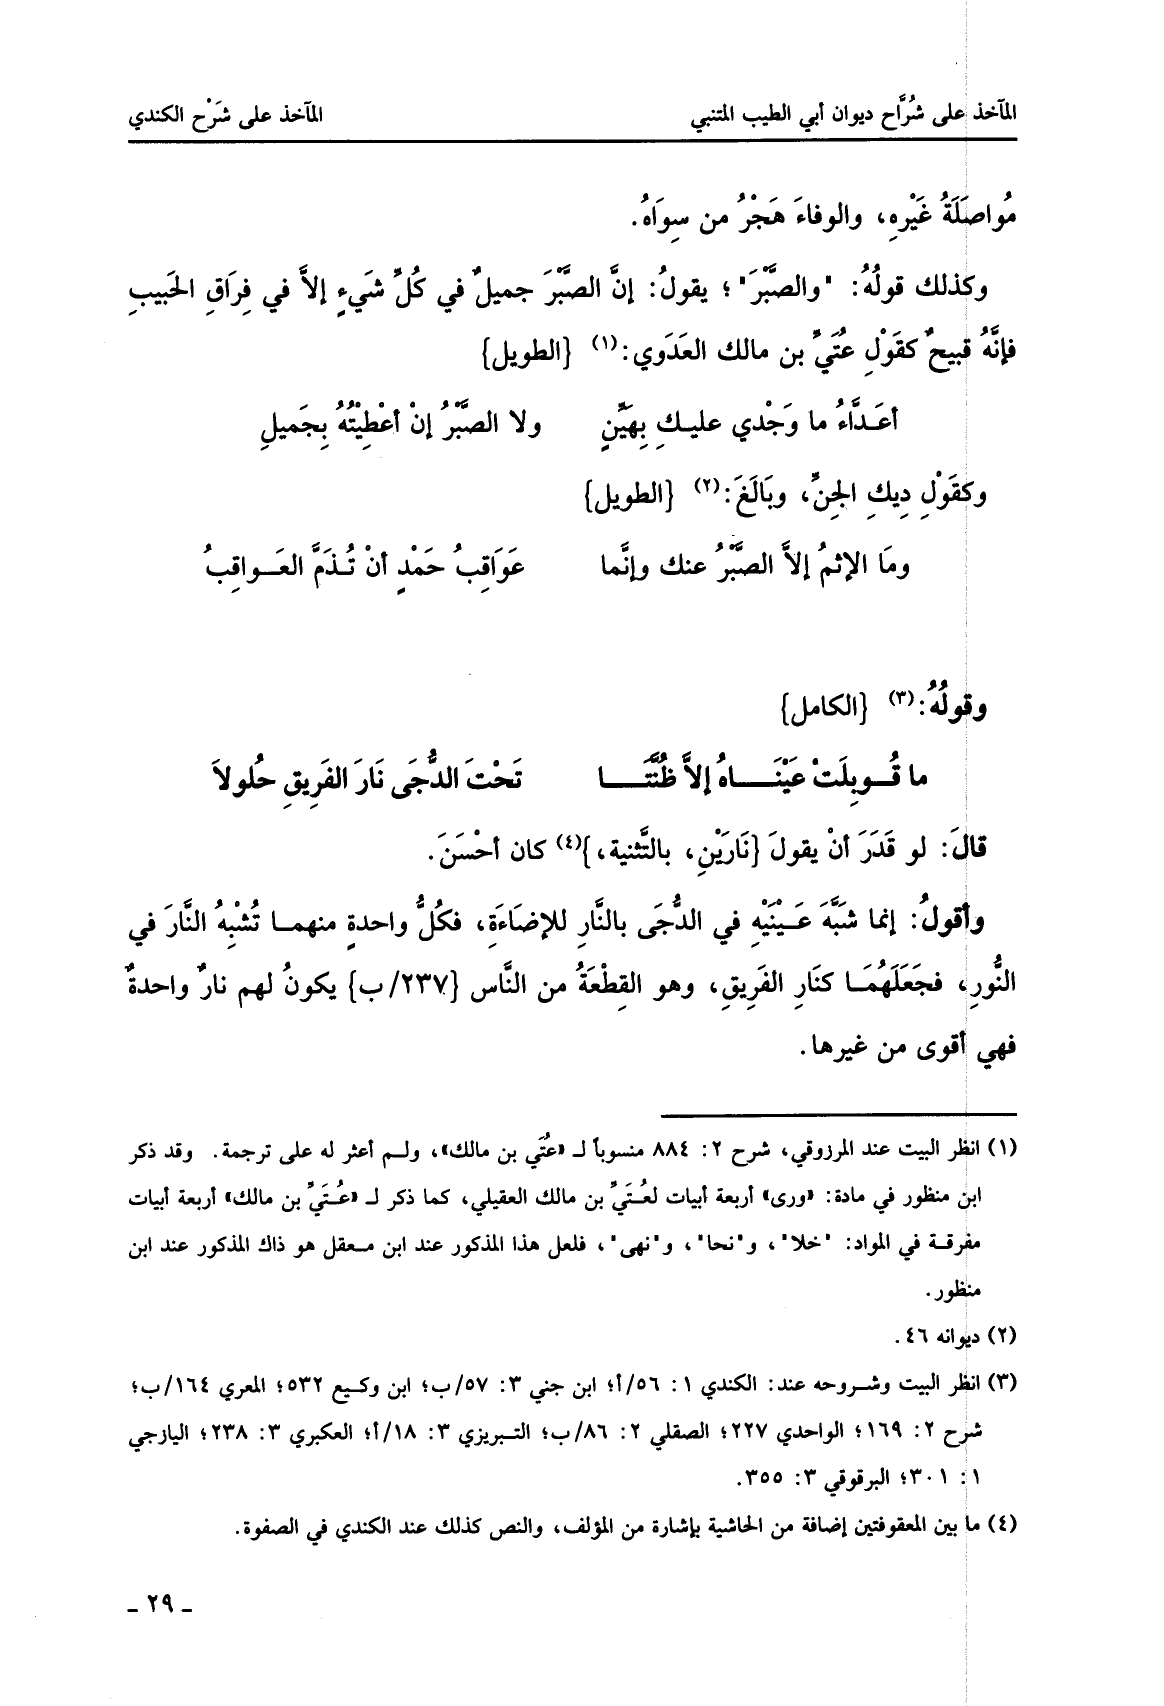 المآخذ على شُرَّاح ديوان أبي الطيب المتنبي المآخذ على شَرْح الكندي
مُواصَلَةُ غَيْرِهِ، والوفاءَ هَجْرُ من سِوَاهُ.
وكذلك قولُهُ: "والصَّبْرَ"؛ يقولُ: إنَّ الصَّبْرَ جميلٌ في كُلِّ شَيءٍ إلاَّ في فِرَاقِ الحَبيبِ
فإنَّهُ قبيحٌ كقَوْلِ عُتَيِّ بن مالك العَدَوي:(١) {الطويل}
أعَـدَّاءُ ما وَجْدي عليـكِ بِهَيِّنٍ ولا الصَّبْرُ إنْ أعْطِيْتُهُ بِجَميلِ
وكقَوْلِ دِيكِ الجِنِّ، وبَالَغَ:(٢) {الطويل}
ومَا الإثمُ إلاَّ الصَّبْرُ عنك وإنَّما عَوَاقِبُ حَمْدٍ أنْ تُـذَمَّ العَـواقِبُ
وقولُهُ:(٣) {الكامل}
ما قُـوبِلَتْ عَيْنَـــاهُ إلاَّ ظُنَّتَـــا تَحْتَ الدُّجَى نَارَ الفَرِيقِ حُلولاَ
قالَ: لو قَدَرَ أنْ يقولَ {نَارَيْنِ، بالتَّثنية،}(٤) كان أحْسَنَ.
وأقولُ: إنما شَبَّهَ عَـيْنَيْهِ في الدُّجَى بالنَّارِ للإضَاءَةِ، فكُلُّ واحدةٍ منهمـا تُشْبِهُ النَّارَ في
النُّورِ، فجَعَلَهُمَـا كنَارِ الفَرِيقِ، وهو القِطْعَةُ من النَّاس {٢٣٧/ب} يكونُ لهم نارٌ واحدةٌ
فهي أقوى من غيرها.
(١) انظر البيت عند المرزوقي، شرح ٢: ٨٨٤ منسوباً لـ «عُتَي بن مالك»، ولـم أعثر له على ترجمة. وقد ذكر
ابن منظور في مادة: «ورى» أربعة أبيات لعُـتَيِّ بن مالك العقيلي، كما ذكر لـ «عُـتَيِّ بن مالك» أربعة أبيات
مفرقـة في المواد: "خلا"، و"نحا"، و"نهى"، فلعل هذا المذكور عند ابن مـعقل هو ذاك المذكور عند ابن
منظور.
(٢) ديوانه ٤٦.
(٣) انظر البيت وشـروحه عند: الكندي ١: ٥٦/أ؛ ابن جني ٣: ٥٧/ب؛ ابن وكـيع ٥٣٢؛ المعري ١٦٤/ب؛
شرح ٢: ١٦٩؛ الواحدي ٢٢٧؛ الصقلي ٢: ٨٦/ب؛ التـبريزي ٣: ١٨/أ؛ العكبري ٣: ٢٣٨؛ اليازجي
١: ٣٠١؛ البرقوقي ٣: ٣٥٥.
(٤) ما بين المعقوفتين إضافة من الحاشية بإشارة من المؤلف، والنص كذلك عند الكندي في الصفوة.
ـ ٢٩ ـ